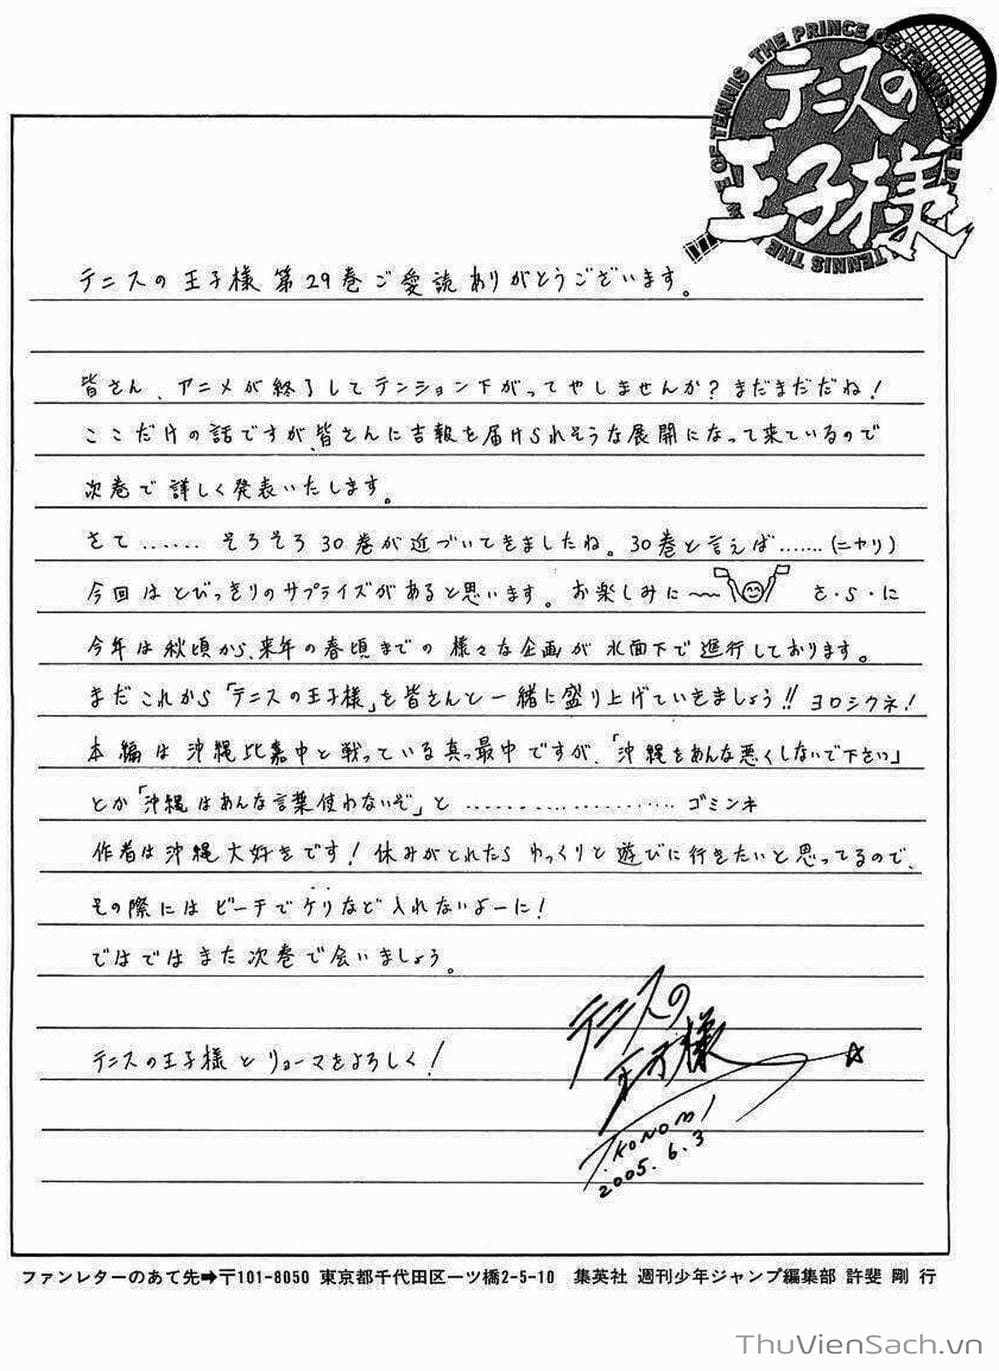 THE PRINCE OF TENNIS
テニスの
王子様
テニスの王子様第29巻ご愛読ありがとうございます。
皆さん、アニメが終了してテンション下がってやしませんか?まだまだだね!
ここだけの話ですが、皆さんに吉報を届けられそうな展開になって来ているので
次巻で詳しく発表いたします。
さて...... そろそろ30巻が近づいてきましたね。30巻と言えば.......(ニヤリ)
今回はとびっきりのサプライズがあると思います。お楽しみに〜 さ・ら・に
今年は秋頃から、来年の春頃までの様々な企画が水面下で進行しております。
まだこれから「テニスの王子様」を皆さんと一緒に盛り上げていきましょう!!ヨロシクネ!
本編は沖縄比嘉中と戦っている真っ最中ですが、「沖縄をあんな悪くしないで下さい」
とか「沖縄はあんな言葉使わないぞ」と ...................... ゴミンネ
作者は沖縄大好きです!休みがとれたらゆっくりと遊びに行きたいと思ってるので、
その際にはビーチでケリなど入れないよーに!
ではではまた次巻で会いましょう。
テニスの王子様とリョーマをよろしく!
テニスの
王子様
T.KONOMI
2005.6.3
ファンレターのあて先➡〒101-8050 東京都千代田区一ツ橋2-5-10 集英社 週刊少年ジャンプ編集部 許斐 剛 行
ThuVienSach.vn